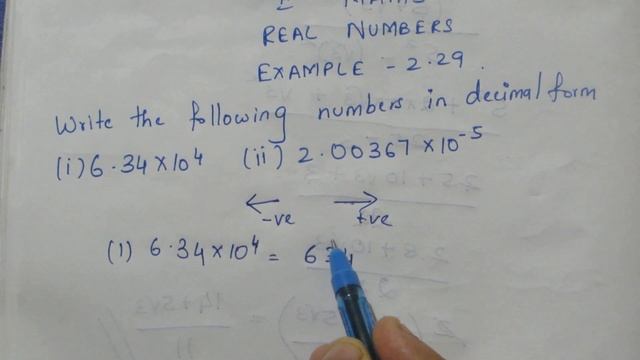 REAL NUMBERS
EXAMPLE - 2.29.
Write the following numbers in decimal form
(i) 6.34 × 10⁴ (ii) 2.00367 × 10⁻⁵
← -ve → +ve
(1) 6.34 × 10⁴ = 634